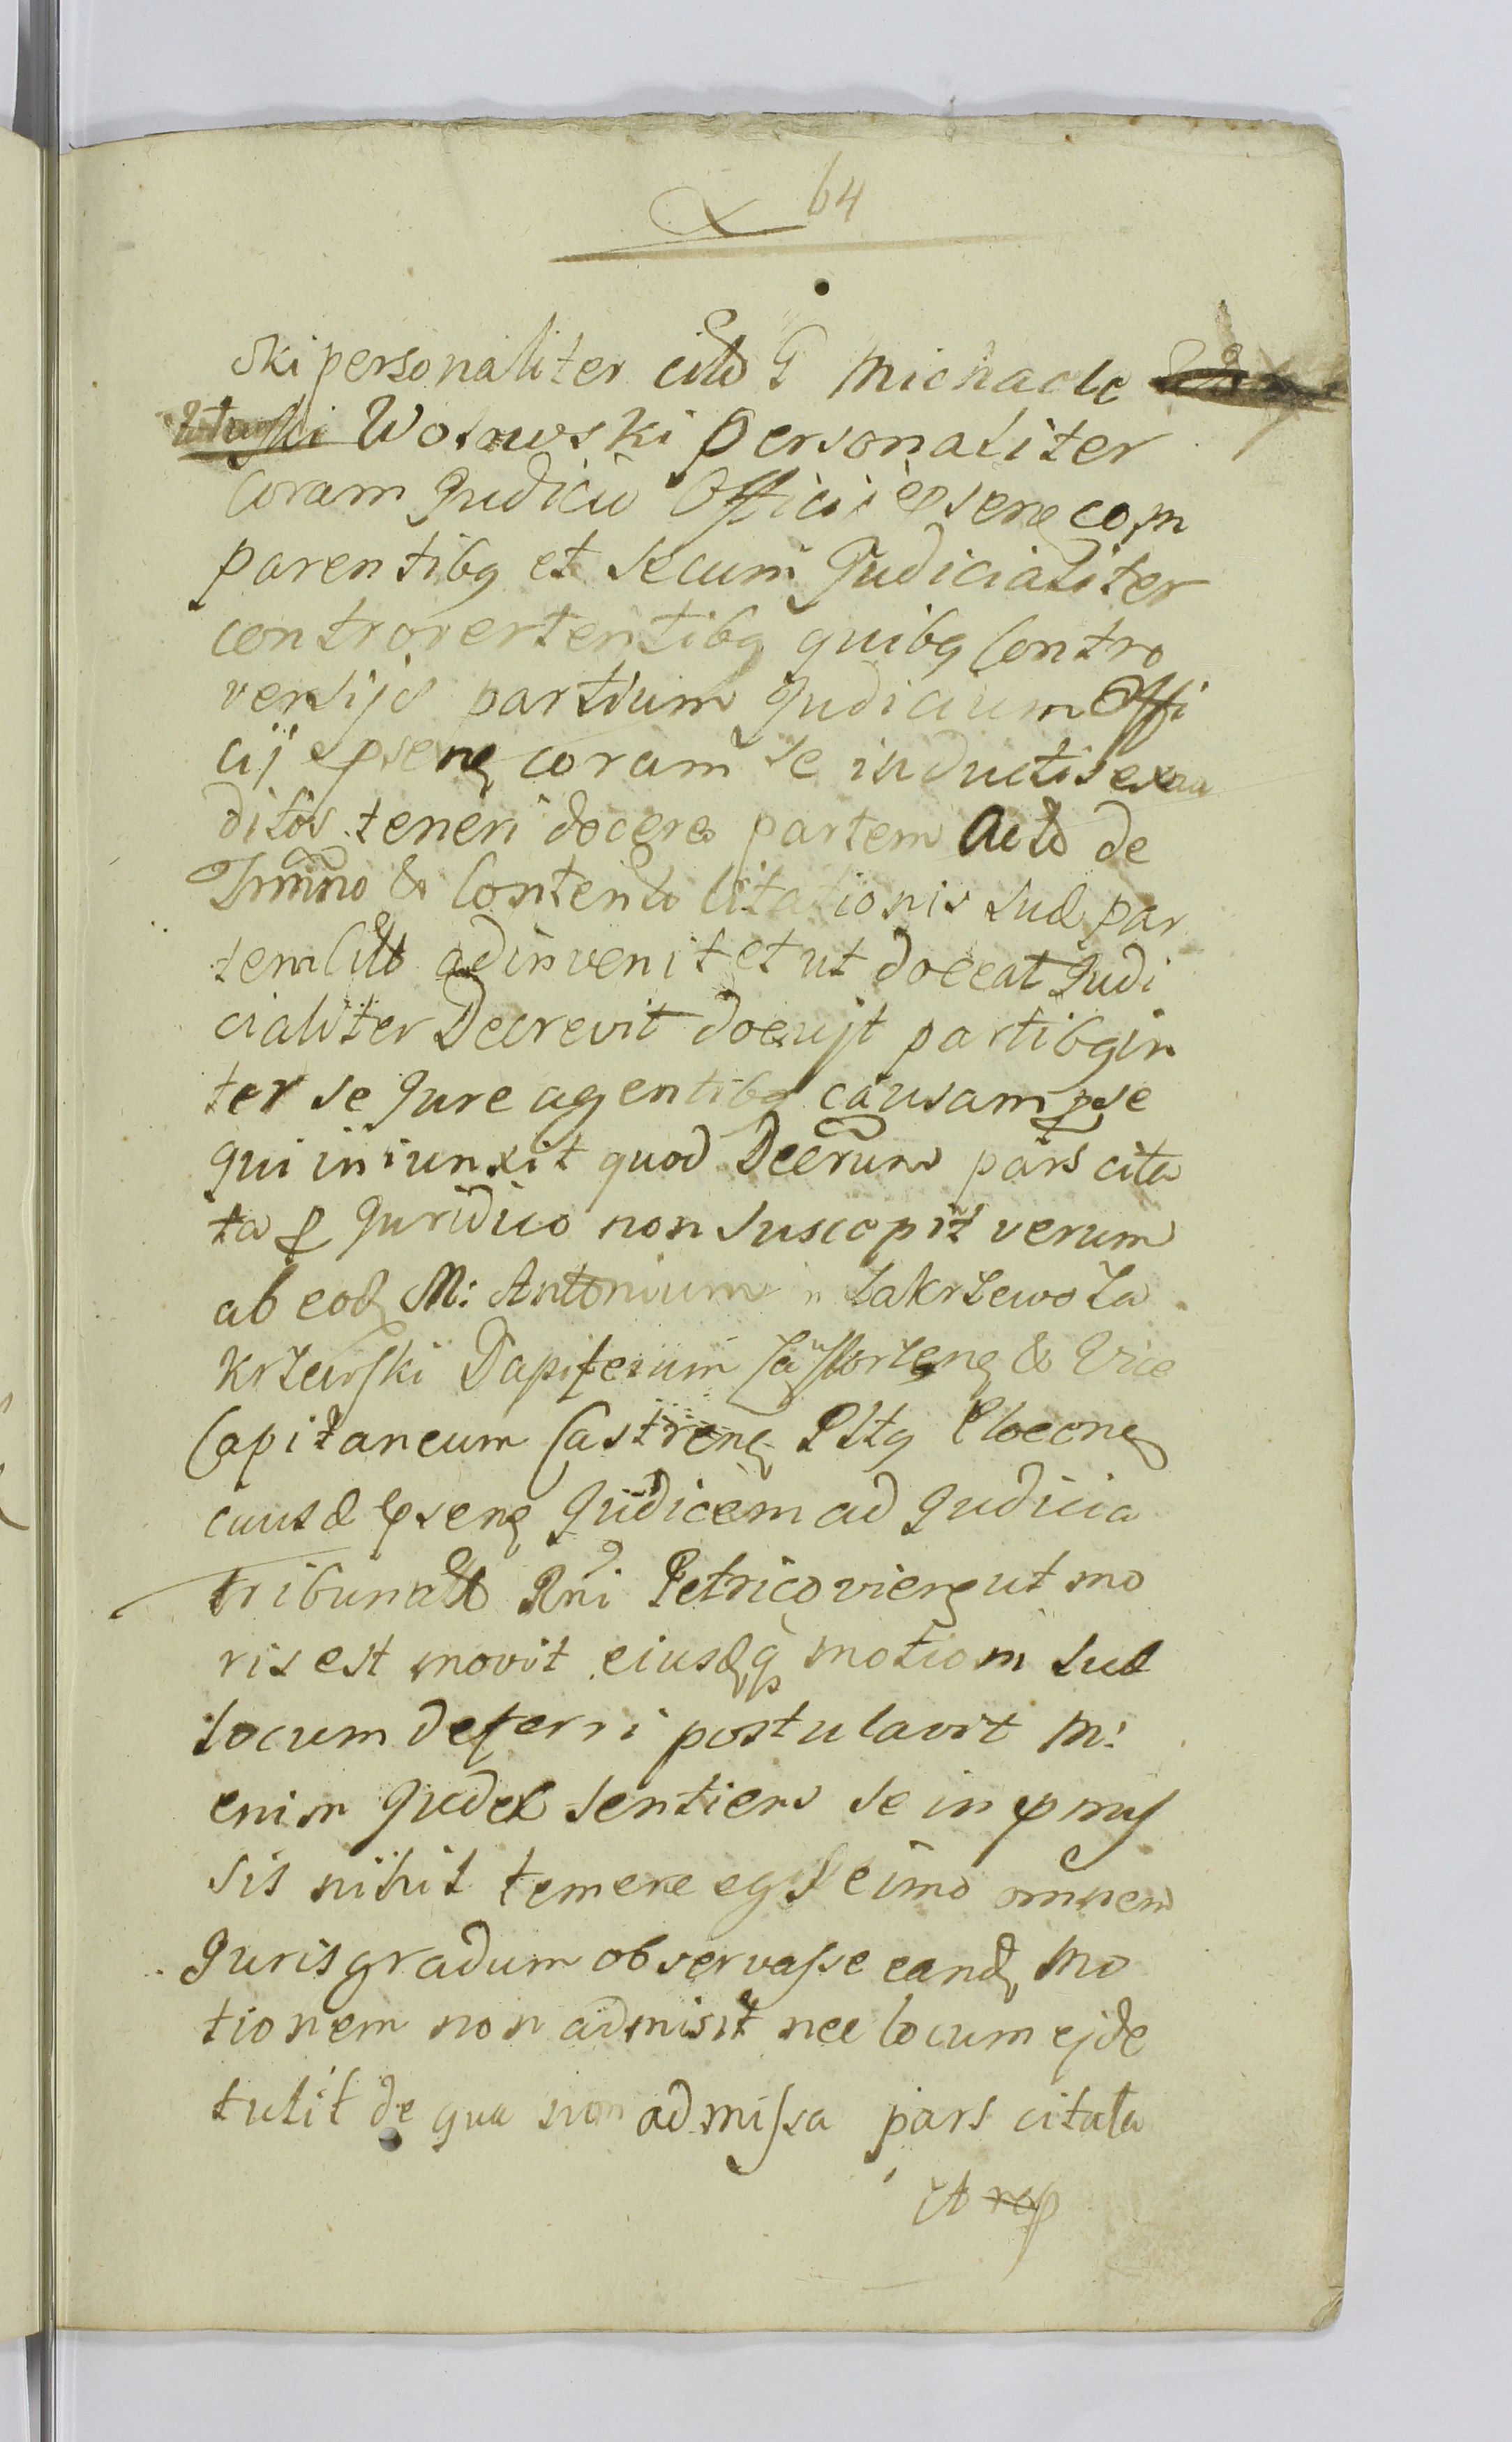 64
ski personaliter citto G Michaele
Wolowski personaliter
Coram Judicio Officii psenq com
parentibq et secum Judicialiter
controvertentibq quibq Contro
versijs partium Judicium Offi
cij psenq coram se inductis exau
ditis teneri docere partem Acto de
Trmno & Contento Citationis suæ par
tem Citto adinvenit et ut doceat Judi
cialiter Decrevit docuijt partibq in
ter se Jure agentibq causam pse
qui iniunxit quod Decrum pars cita
ta p Juridico non suscepit verum
ab eod M: Antonium in Zakrzewo Za
krzewski Dapiferum Zawskrzenq & Vice
Capitaneum Castrenq Pltq Plocenq
cuius d psenq Judicem ad Judicia
tribunalto Rni Petricovienq ut mo
ris est movit eiusdq motioni suæ
locum deferri postulavit M:
enim Judex sentiens se in pmis
sis nihil temere egisse imo omnem
Juris gradum observasse eand mo
tionem non admisit nec locum ej de
tulit de qua non admissa pars citata
et rep